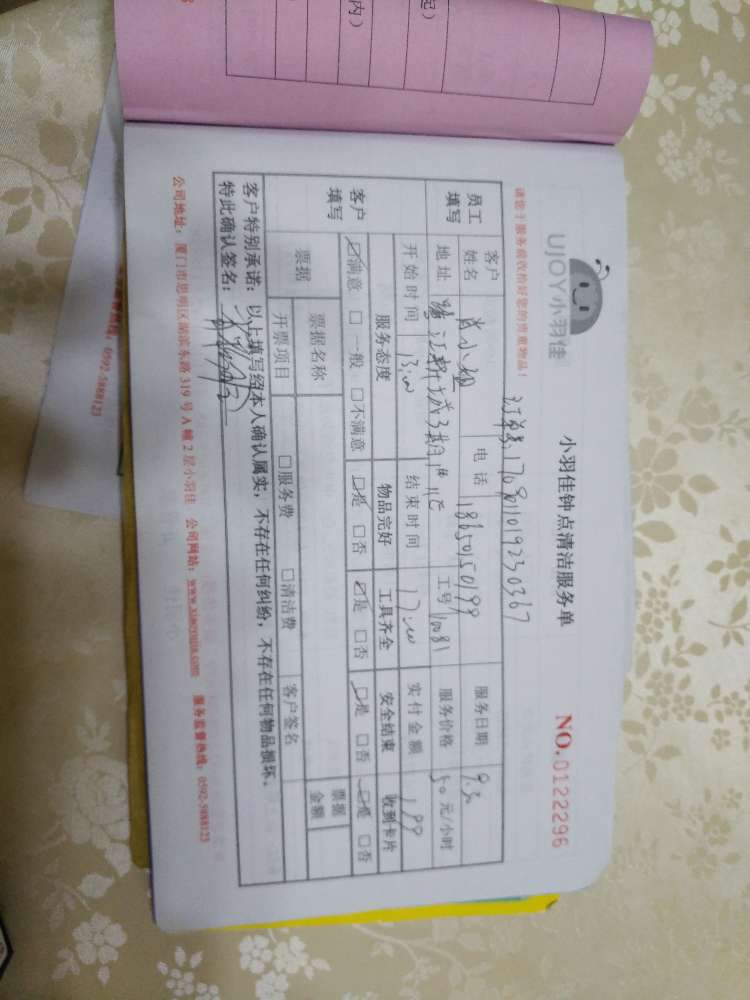 UJOY小羽佳
小羽佳钟点清洁服务单
NO.0122296
请您于服务前收拾好您的贵重物品!
订单号:1708011019230367
员工填写
客户姓名 肖小姐 电话 18650150199 服务日期 9.3
地址 工号 10081 服务价格 50元/小时
开始时间 13:00 结束时间 17:00 实付金额 199
客户填写
服务态度 物品完好 工具齐全 安全结束 收到卡片
☑满意 □一般 □不满意 ☑是 □否 ☑是 □否 ☑是 □否 ☑是 □否
票据 票据名称 票据金额
开票项目 □服务费 □清洁费 客户签名
客户特别承诺:以上填写经本人确认属实,不存在任何纠纷,不存在任何物品损坏,
特此确认签名:
公司地址:厦门市思明区湖滨东路319号A幢2层小羽佳 公司网站:www.xiaoyujia.com 服务监督热线:0592-5888123
0592-5888123
起)
内)